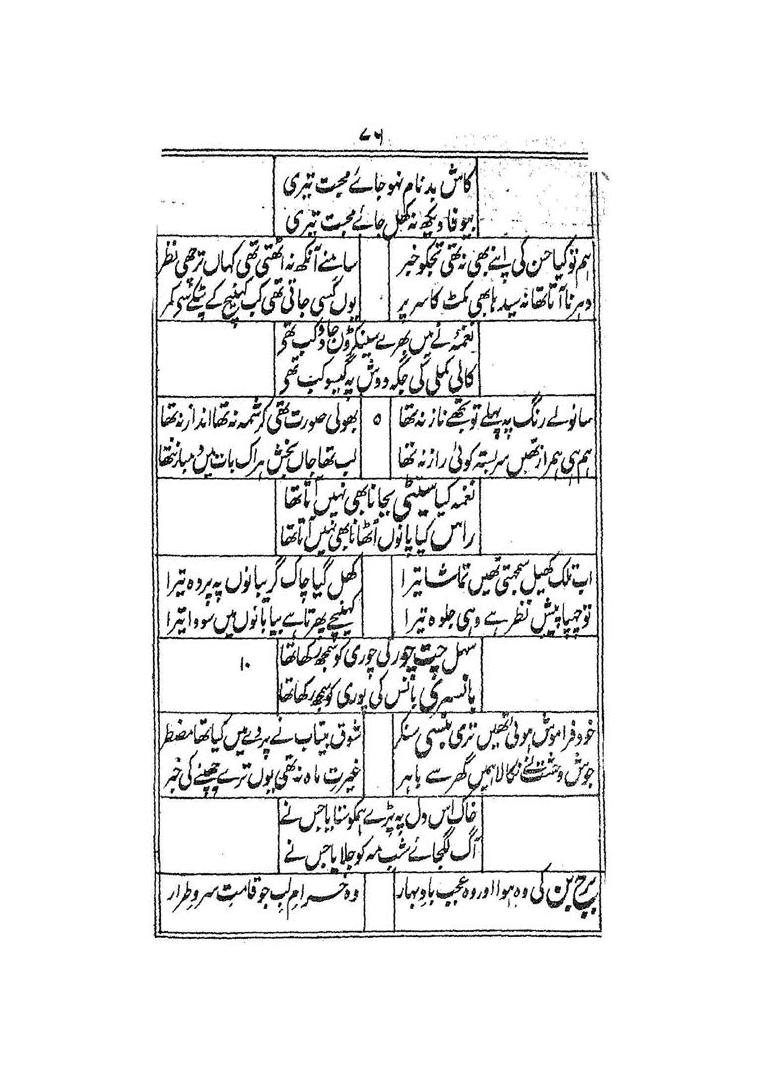 ۷۶
کاش بدنام نہو جائے محبت تیری
بیوفا دیکھ نہ کھل جائے محبت تیری
ہم تو کیا حسن کی اپنے بھی نہ تھی تجکو خبر سامنے آنکھ نہ اٹھتی تھی کہاں ترچھی نظر
دہرنا آتا تھا نہ سیدہا بھی مکٹ کا سر پر یوں کسی جاتی تھی کب کھینچ کے پٹکے سی کمر
نغمۂ نے میں بھرے سینکڑوں جادو کب تھی
کالی کملی کی جگہ دوش پہ گیسو کب تھی
سانولے رنگ پہ پہلے تو تجھے ناز نہ تھا ۵ بھولی صورت تھی کرشمہ نہ تھا انداز نہ تھا
ہم ہی ہمراز تھیں سربستہ کوئی راز نہ تھا لب تھا جاں بخش ہر اک بات میں دمباز نتھا
نغمہ کیا سیٹی بجانا بھی نہیں آتا تھا
راس کیا پانوں اٹھانا بھی نہیں آتا تھا
اب تلک کھیل سمجھتی تھیں تماشا تیرا کھل گیا چاک گریبانوں پہ پردہ تیرا
تو چھپا پیش نظر ہے وہی جلوہ تیرا کھینچے پھرتا ہے بیابانوں میں سودا تیرا
سہل چت چور کی چوری کو سمجھ رکھا تھا ۱۰
بانسری بانس کی پوری کو سمجھ رکھا تھا
خود فراموش ہوئی تھیں تری بنسی سنکر شوق بیتاب نے پردے میں کیا تھا مضطر
جوش وحشت نے نکالا ہمیں گھر سے باہر غیرت ماہ نہ تھی یوں ترے چھپنے کی خبر
خاک اس دل پہ پڑے ہمکو بنایا جس نے
آگ لگجائے شب مہ کو جلایا جس نے
برج بن کی وہ ہوا اور وہ عجب باد بہار وہ خرام لب جو قامت سرو طرار